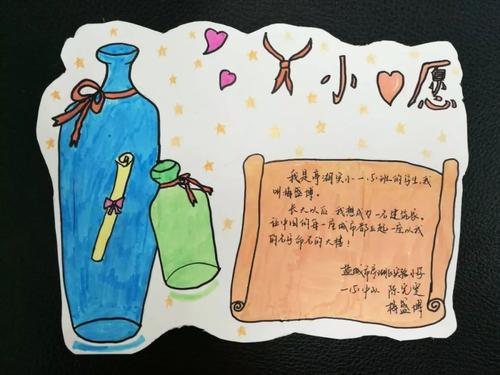 小 愿
我是亭湖实小一(5)班的学生,我
叫梅盛博。
长大以后,我想成为一名建筑家。
让中国的每一座城市都立起一座以我
的名字命名的大楼!
盐城市亭湖区实验小学
一(5)中队 陈
梅盛博